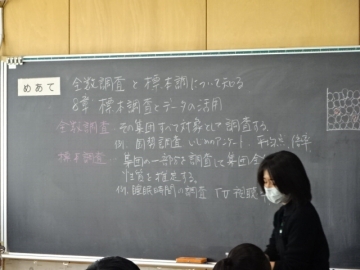 めあて
全数調査と標本調について知る
8章 標本調査とデータの活用
全数調査…その集団すべて対象として調査する.
例 国勢調査 いじめのアンケート
標本調査… 集団の一部分を調査して集団全
性質を推定する.
例. 睡眠時間の調査